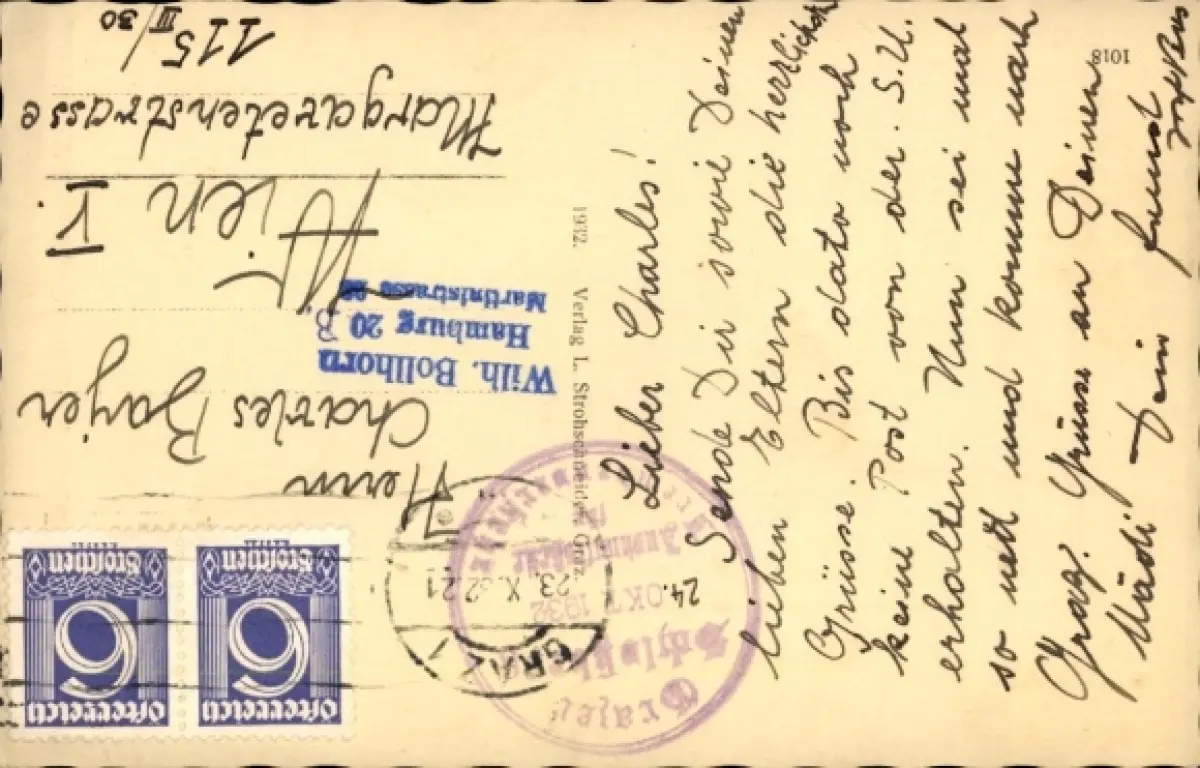 Lieber Charles!
Sende Dir sowie Deinen
lieben Eltern die herrlichsten
Grüsse. Bis dato noch
keine Post von der. S.U.
erhalten. Nun sei mal
so nett und komme nach
Graz. Grüsse an Deinen
Mädi Dein freund
1932. Verlag L. Strohschneider, Graz.
1018
Österreich
6
Groschen
Österreich
6
Groschen
GRAZ 1
23.X.32 21
Grazer
24. OKT. 1932
Herrn
Charles Bayer
Wilh. Bollhorn
Hamburg 20
Martinistrasse
Wien V.
Margaretenstrasse
115 / III/30